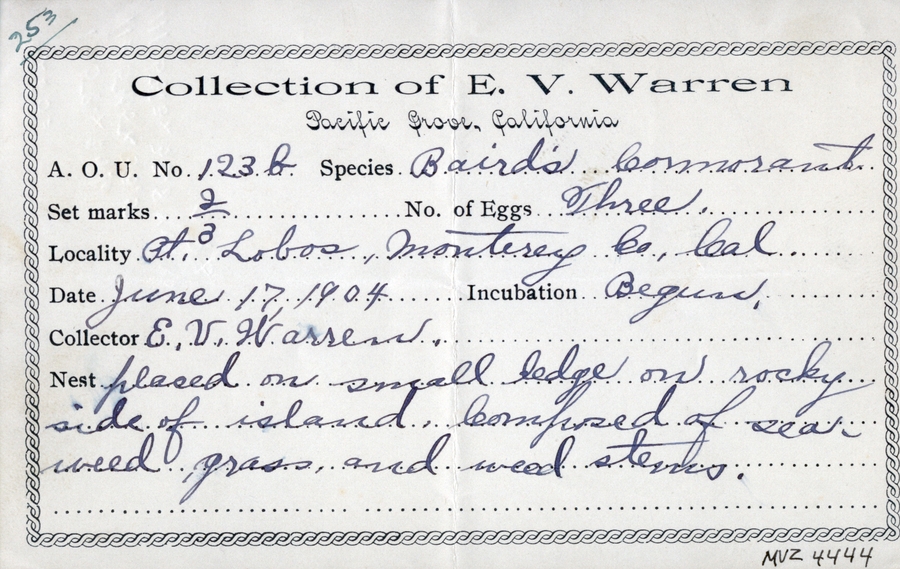 253
Collection of E. V. Warren
Pacific Grove, California
A. O. U. No. 123b Species Baird's Cormorant
Set marks 2/3 No. of Eggs Three.
Locality Pt. Lobos, Monterey Co., Cal
Date June 17, 1904 Incubation Begun.
Collector E. V. Warren.
Nest placed on small ledge on rocky
side of island. Composed of sea-
weed, grass, and weed stems.
MVZ 4444